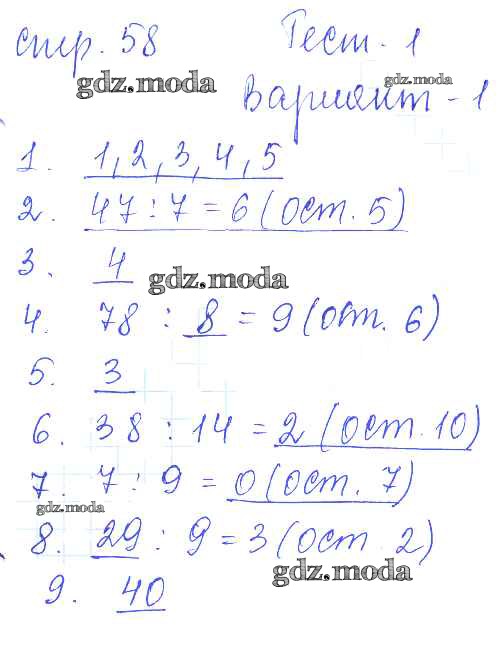 стр. 58 Тест - 1
gdz.moda gdz.moda
Вариант - 1
1. 1, 2, 3, 4, 5
2. 47 : 7 = 6 (ост. 5)
3. 4
gdz.moda
4. 78 : 8 = 9 (ост. 6)
5. 3
6. 38 : 14 = 2 (ост. 10)
7. 7 : 9 = 0 (ост. 7)
gdz.moda
8. 29 : 9 = 3 (ост. 2)
gdz.moda
9. 40